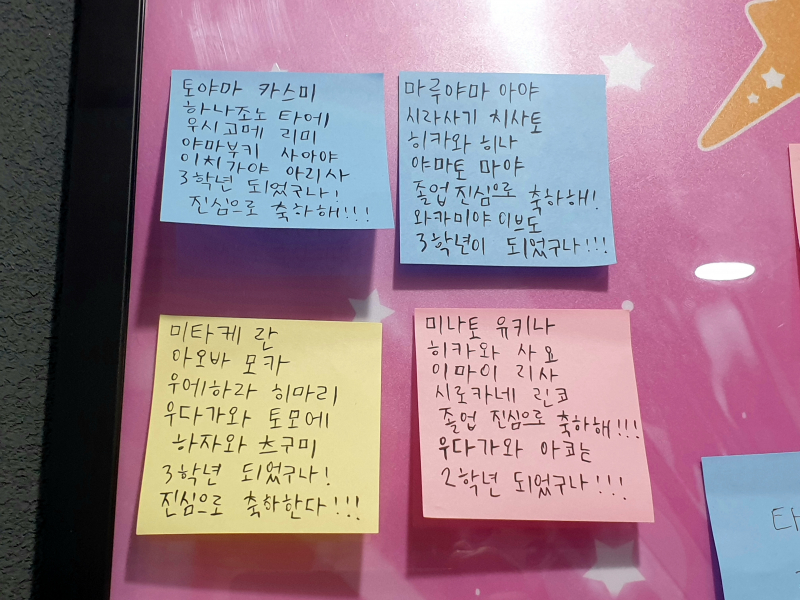 토야마 카스미
하나조노 타에
우시고메 리미
야마부키 사아야
이치가야 아리사
3학년 되었구나!
진심으로 축하해!!!
마루야마 아야
시라사키 치사토
히카와 히나
야마토 마야
졸업 진심으로 축하해!
와카미야 이브도
3학년이 되었구나!!!
미타케 란
아오바 모카
우에하라 히마리
우다가와 토모에
하자와 츠구미
3학년 되었구나!
진심으로 축하한다!!!
미나토 유키나
히카와 사요
이마이 리사
시로카네 린코
졸업 진심으로 축하해!!!
우다가와 아코는
2학년 되었구나!!!
타